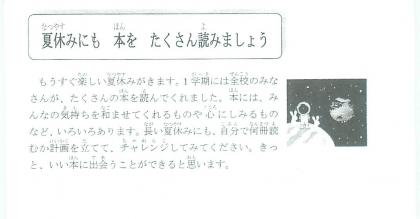 夏休みにも 本を たくさん読みましょう
もうすぐ楽しい夏休みがきます。1学期には全校のみな
さんが、たくさんの本を読んでくれました。本には、み
んなの気持ちを和ませてくれるものや心にしみるもの
など、いろいろあります。長い夏休みにも、自分で何冊読
むか計画を立てて、チャレンジしてみてください。きっ
と、いい本に出会うことができると思います。